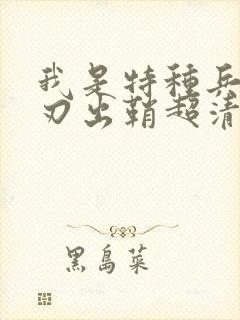 我是特種兵
刃出鞘超清
黑島菜